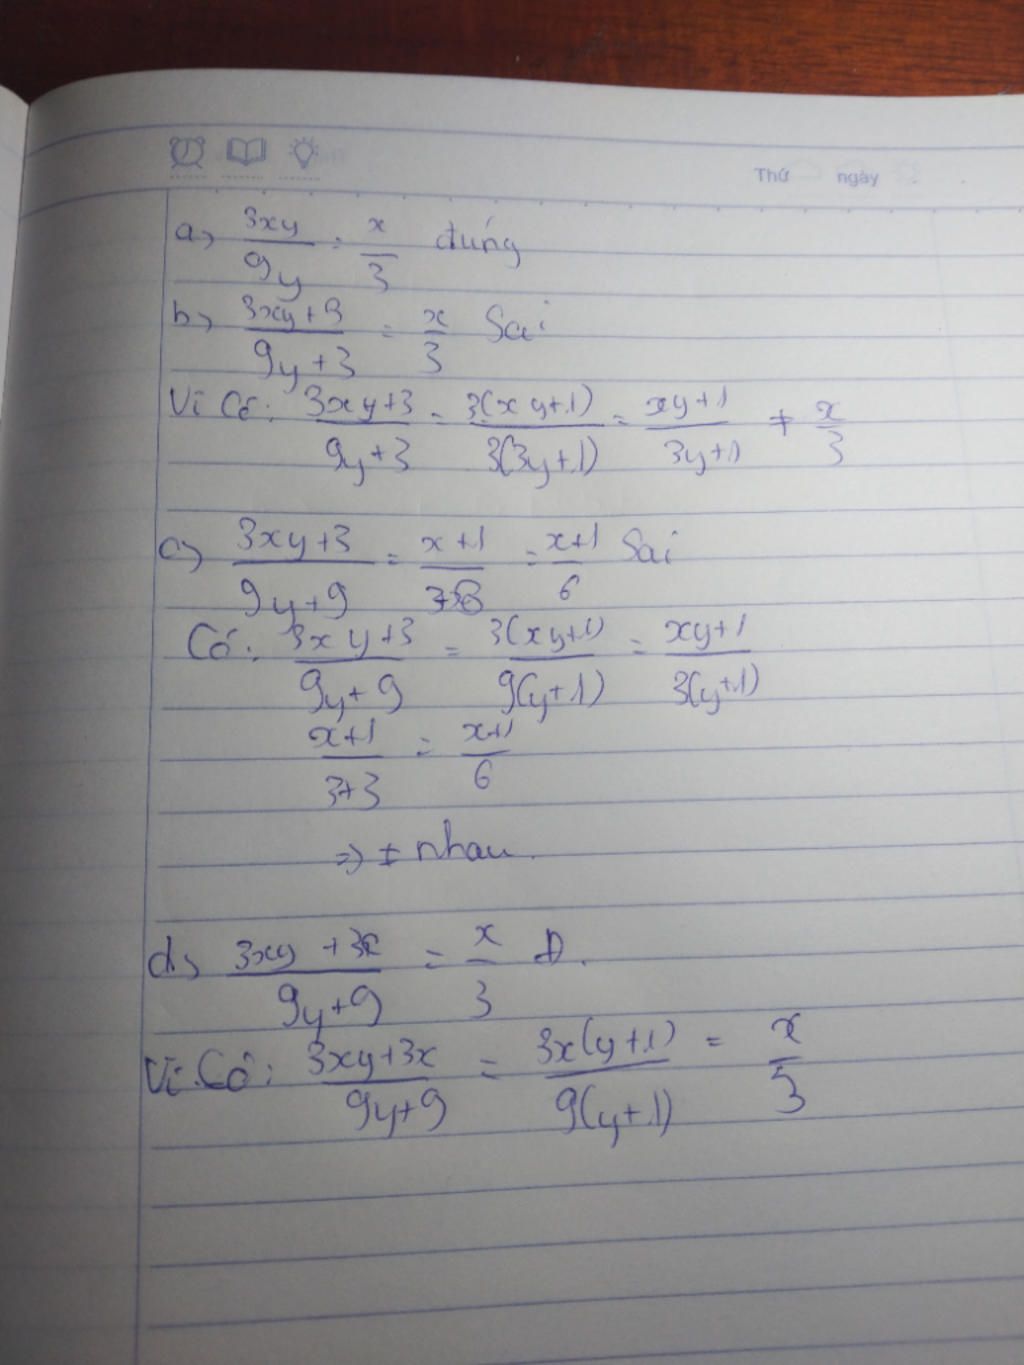 Thứ ngày
a, 3xy/9y = x/3 đúng
b, 3xy+3/9y+3 = x/3 Sai
Vì Có: 3xy+3/9y+3 = 3(xy+1)/3(3y+1) = xy+1/3y+1 ≠ x/3
c, 3xy+3/9y+9 = x+1/3+3 = x+1/6 Sai
Có: 3xy+3/9y+9 = 3(xy+1)/9(y+1) = xy+1/3(y+1)
x+1/3+3 = x+1/6
=> ≠ nhau.
d, 3xy+3x/9y+9 = x/3 Đ.
Vì Có: 3xy+3x/9y+9 = 3x(y+1)/9(y+1) = x/3